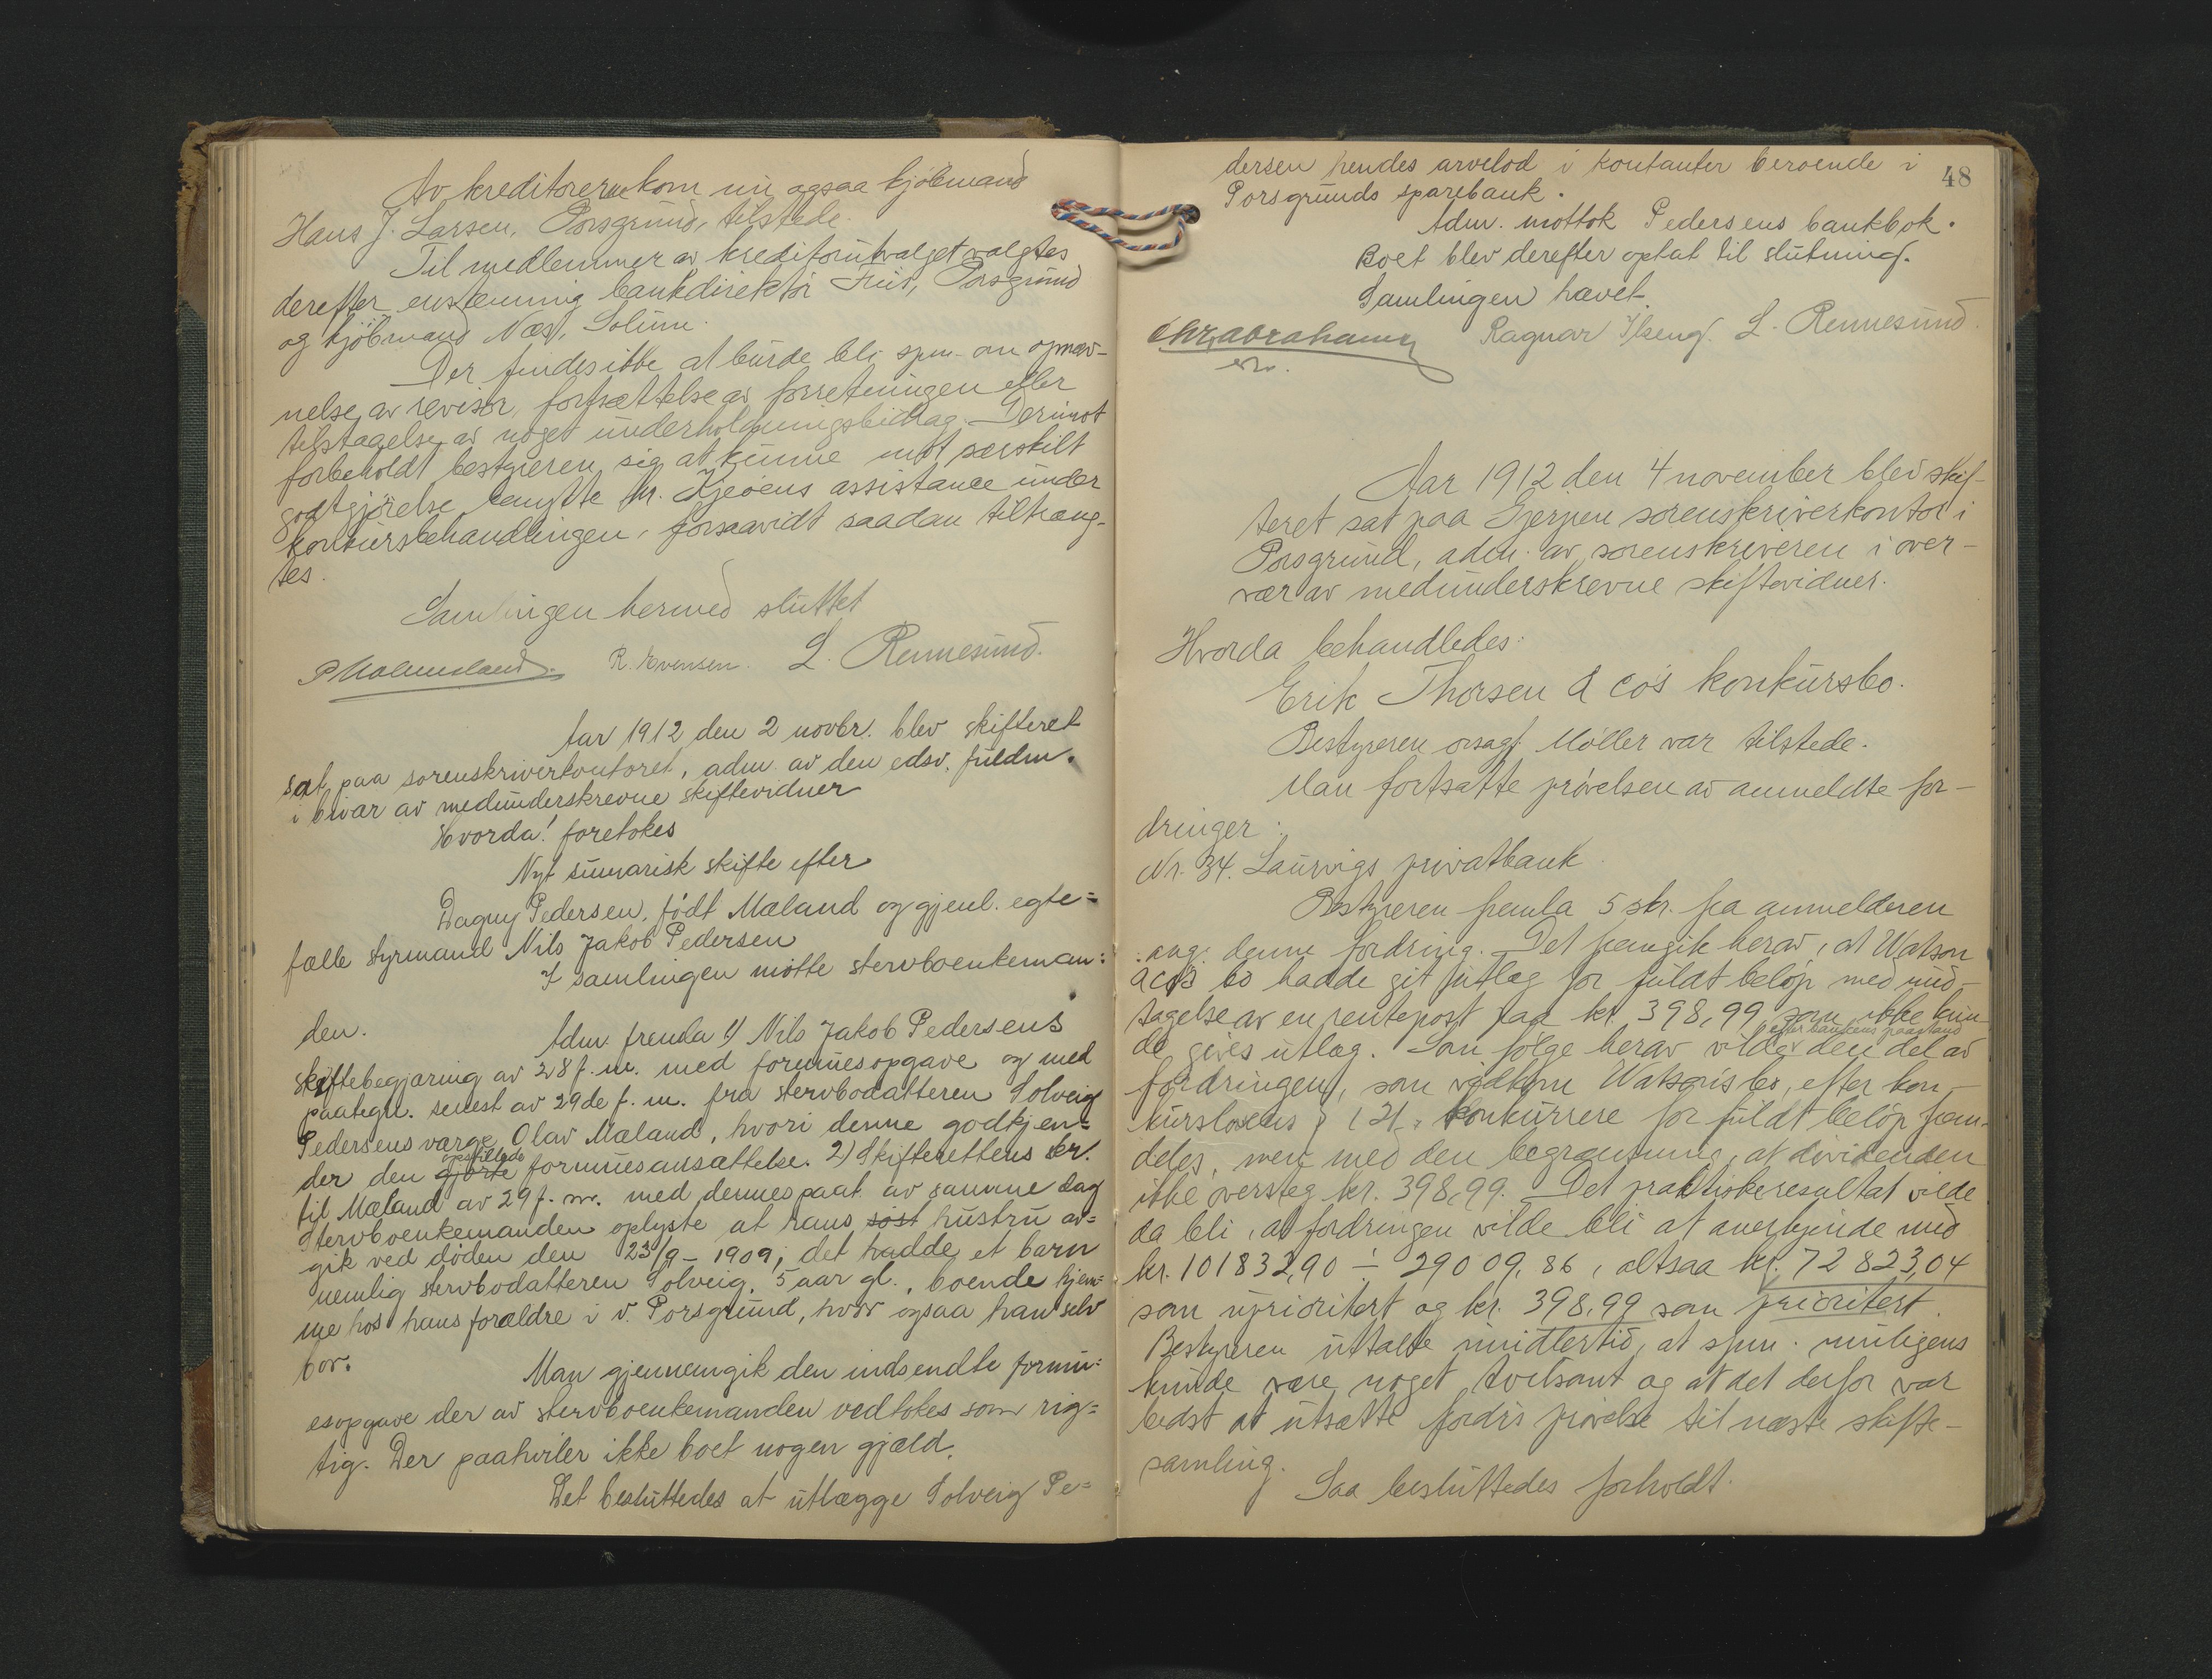 Av kreditorerne kom nu ogsaa kjöbmand
Hans J. Larsen, Porsgrund, tilstede.
Til medlemmer av kreditorutvalget valgtes
derefter enstemmig bankdirektör Friis, Porsgrund
og kjöbmand Næs, Solum.
Der findes ikke at burde bli spm. om opnæv-
nelse av revisor, fortsættelse av forretningen eller
tilstaaelse av noget underholdningsbidrag. Derimot
forbeholdt bestyreren sig at kunne mot særskilt
godtgjörelse benytte hr. assistance under
konkursbehandlingen, forsaavidt saadan tiltræng-
tes.
Samlingen hermed sluttet
P Holmesland. R. Evensen. L. Rennesund.
Aar 1912 den 2 novbr. blev skifteret
sat paa sorenskriverkontoret, adm. av den edsv. fuldm.
i bivær av medunderskrevne skiftevidner
Hvorda! foretokes
Nyt sumarisk skifte efter
Dagny Pedersen, födt Mæland og gjenl. egte=
fælle styrmand Nils Jakob Pedersen
I samlingen mötte stervboenkeman=
den.
Adm. fremla 1) Nils Jakob Pedersens
skiftebegjæring av 28 f. m. med formuesopgave og med
paategn. senest av 29de f. m. fra stervbodatteren Solveig
Pedersens værge Olav Mæland, hvori denne godkjen=
der den gjorte opstillede formuesansættelse. 2) Skifterettens skr.
til Mæland av 29 f. m. med dennes paat. av samme dag
Stervboenkemanden oplyste at hans söst hustru av=
gik ved döden den 23/9 - 1909; det hadde et barn
nemlig stervbodatteren Solveig, 5 aar gl., boende hjem=
me hos hans forældre i v. Porsgrund, hvor ogsaa han selv
bor.
Man gjennemgik den indsendte formu=
esopgave der av stervboenkemanden vedtokes som rig=
tig. Der paahviler ikke boet nogen gjæld.
Det besluttedes at utlægge Solveig Pe=
48
dersen hendes arvelod i kontanter beroende i
Porsgrunds sparebank.
Adm. mottok Pedersens bankbok.
Boet blev derefter optat til slutning.
Samlingen hævet.
Chr. Abrahams
Ragnar Ilseng. L. Rennesund.
Aar 1912 den 4 november blev skif-
teret sat paa Gjerpen sorenskriverkontor i
Porsgrund, adm. av sorenskriveren i over-
vær av medunderskrevne skiftevidner.
Hvorda behandledes:
Erik Thorsen & co's konkursbo.
Bestyreren orsagf. Möller var tilstede.
Man fortsatte prövelsen av anmeldte for-
dringer:
Nr. 34. Laurvigs privatbank
Bestyreren fremla 5 skr. fra anmelderen
ang. denne fordring. Det fremgik herav, at Watson
& co's bo hadde git utlæg for fuldt belöp med und-
tagelse av en rentepost paa kr. 398,99 som ikke kun-
de gives utlæg. Som fölge herav vilde efter bankens paastand den del av
fordringen, som vedkom Watson's bo, efter kon-
kurslovens § 121 konkurrere for fuldt belöp frem-
deles, men med den begrænsning, at dividenden
ikke oversteg kr. 398,99. Det praktiske resultat vilde
da bli, at fordringen vilde bli at anerkjende med
kr. 101832,90 ÷ 29009,86, altsaa kr. 72823,04
som uprioritert og kr. 398,99 som prioritert.
Bestyreren uttalte imidlertid, at spm. muligens
kunde være noget tvilsomt og at det derfor var
bedst at utsætte fordr's prövelse til næste skifte-
samling.
Saa besluttedes forholdt.